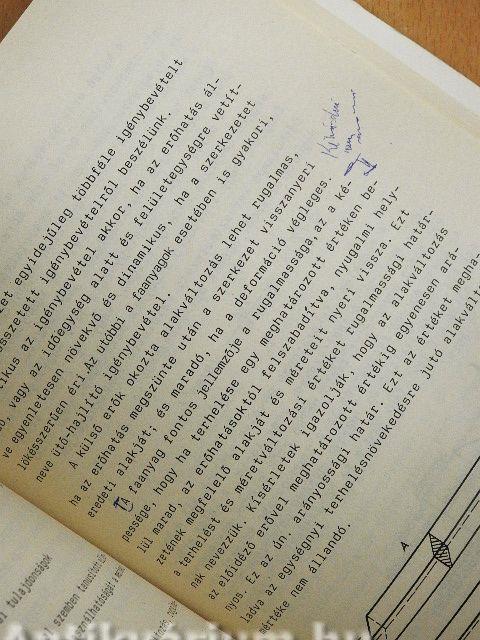 et egyidejűleg többféle igénybevételt
sszetett igénybevételről beszélünk.
ikus az igénybevétel akkor, ha az erőhatás ál-
vagy az időegység alatt és felületegységre vetít-
ve egyenletesen növekvő és dinamikus, ha a szerkezetet
lökésszerűen éri. Az utóbbi a faanyagok esetében is gyakori,
neve ütő-hajlító igénybevétel.
A külső erők okozta alakváltozás lehet rugalmas,
ha az erőhatás megszünte után a szerkezet visszanyeri
eredeti alakját; és maradó, ha a deformáció végleges.
A faanyag fontos jellemzője a rugalmassága, az a ké-
pessége, hogy ha terhelése egy meghatározott értéken be-
lül marad, az erőhatásoktól felszabadítva, nyugalmi hely-
zetének megfelelő alakját és méreteit nyeri vissza. Ezt
a terhelést és méretváltozási értéket rugalmassági határ-
nak nevezzük. Kísérletek igazolják, hogy az alakváltozás
az előidéző erővel meghatározott értékig egyenesen ará-
nyos. Ez az ún. arányossági határ. Ezt az értéket megha-
ladva az egységnyi terhelésnövekedésre jutó alakválto
mértéke nem állandó.
A
ai tulajdonságok
szemben
Antikvárium.hu